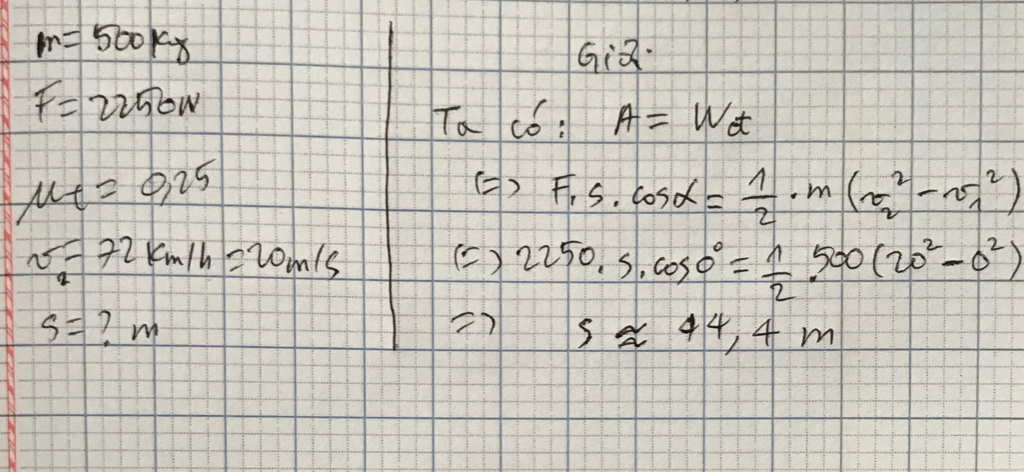 m = 500 kg
F = 2250N
μt = 0,25
v₂ = 72 km/h = 20m/s
s = ? m
Giải:
Ta có: A = Wđ
<=> F.s.cosα = 1/2 . m (v₂² - v₁²)
<=> 2250.s.cos0° = 1/2 .500 (20² - 0²)
=> s ≈ 44,4 m